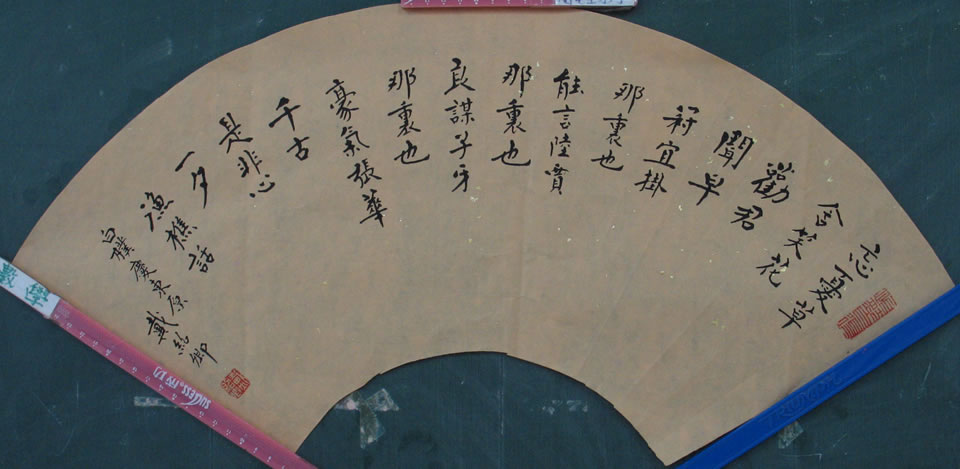 忘憂草
含笑花
勸君
聞早
冠宜掛
那裏也
能言陸賈
那裏也
良謀子牙
那裏也
豪氣張華
千古
是非心
一夕
漁樵話
白樸慶東原 戴
SUCCESS